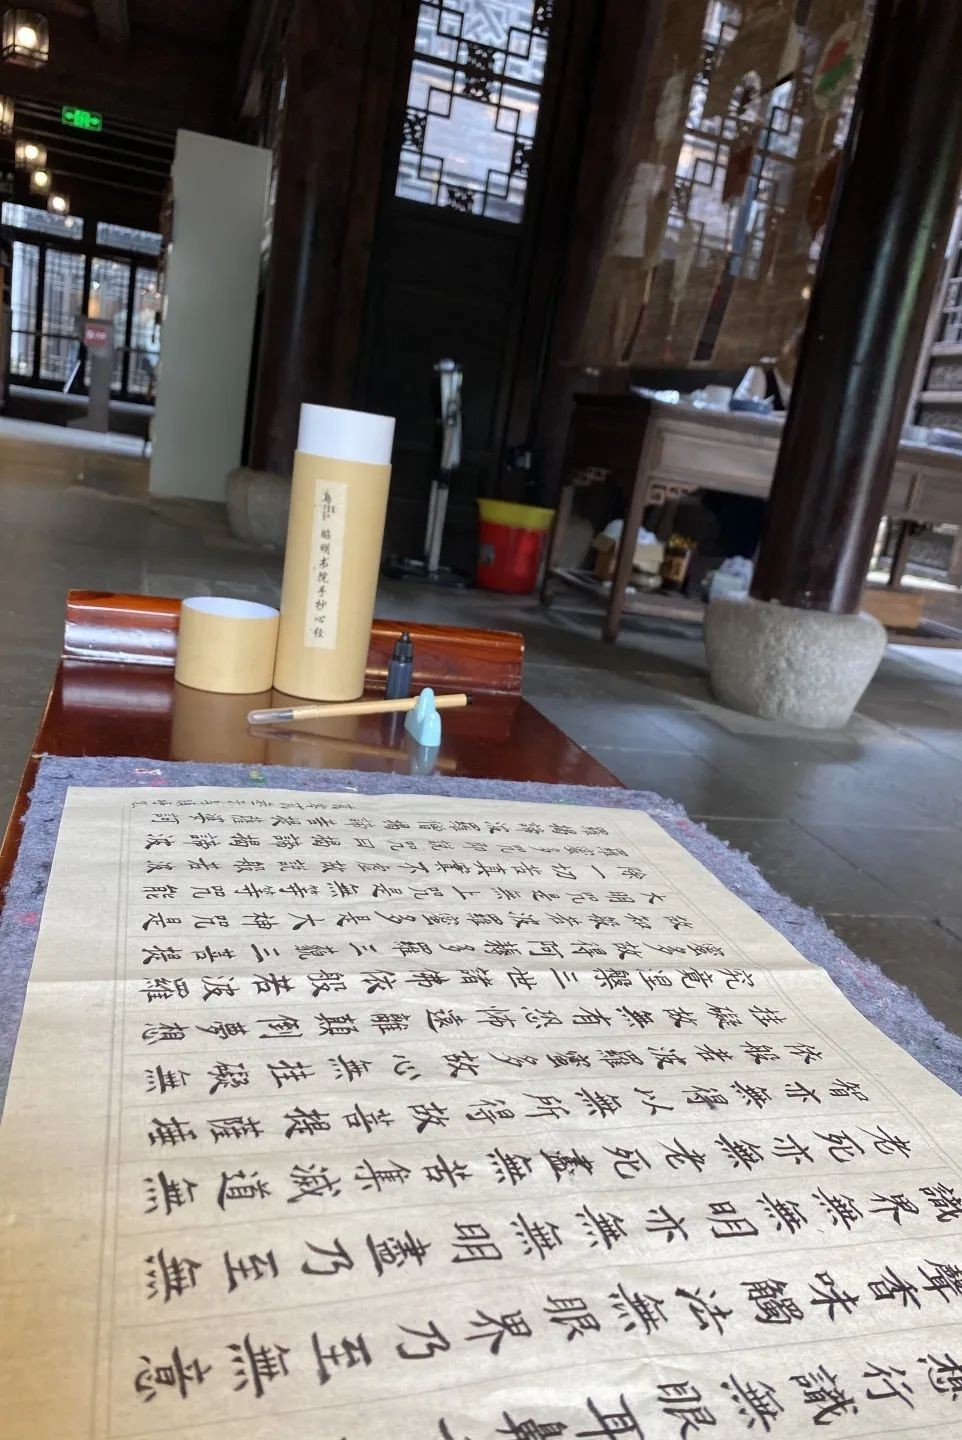 昭明书院手抄心经
想行識無眼耳鼻
聲香味觸法無眼界乃至無意
識界無無明亦無無明盡乃至無
老死亦無老死盡無苦集滅道無
智亦無得以無所得故菩提薩埵
依般若波羅蜜多故心無挂礙無
挂礙故無有恐怖遠離顛倒夢想
究竟涅槃三世諸佛依般若波羅
蜜多故得阿耨多羅三藐三菩提
故知般若波羅蜜多是大神咒是
大明咒是无上咒是無等等咒能
除一切苦真實不虛故說般若波
羅蜜多咒即說咒曰揭諦揭諦波
羅揭諦波羅僧揭諦菩提薩婆訶